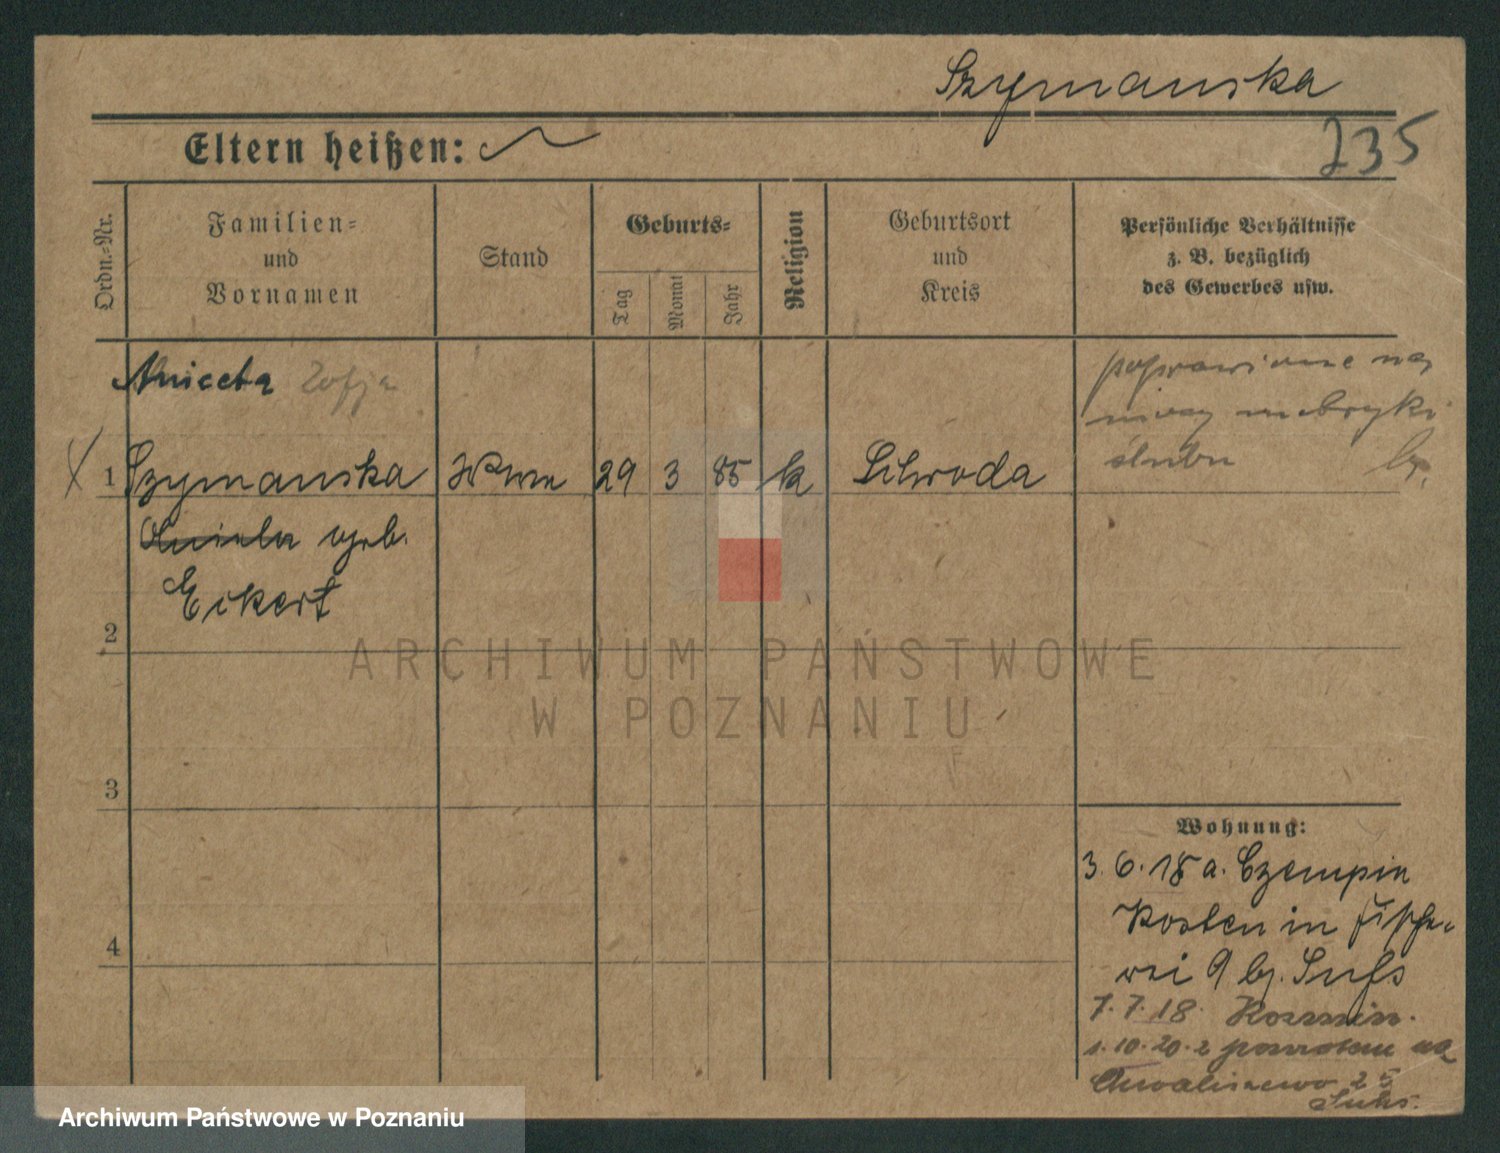 Szymanska
235
Eltern heißen:
Ordn.-Nr.
Familien-
und
Vornamen
Stand
Geburts-
Tag
Monat
Jahr
Religion
Geburtsort
und
Kreis
Persönliche Verhältnisse
z. B. bezüglich
des Gewerbes usw.
Aniceta Zofja
poprawione na
mocy metryki
ślubu
1 Szymanska Wwe 29 3 85 k Schroda
Aniela geb.
Eckert
2
3
4
Wohnung:
3. 6. 18 a. Czempin
Kosten in Fische-
rei 9 bj. Suchs
7. 7. 18 Kosmin.
1. 10. 20. z powrotem na
Chwaliszewo 25
ARCHIWUM PAŃSTWOWE
W POZNANIU
Archiwum Państwowe w Poznaniu